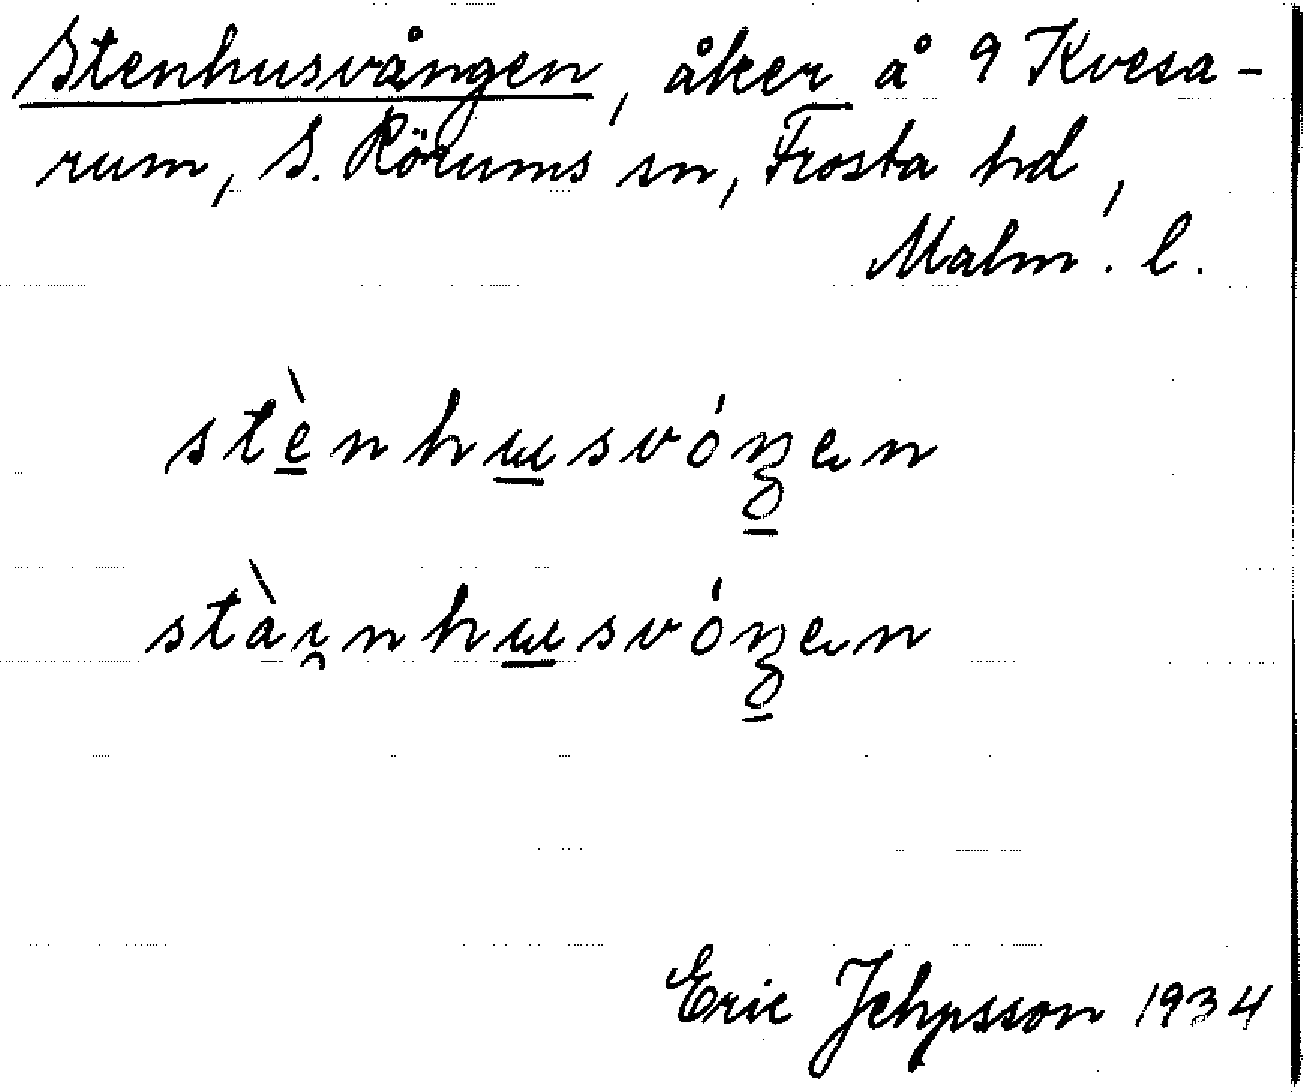 Stenhusvången, åker å 9 Kvesa-
rum, S. Rörums sn, Frosta hd,
Malm. l.
stènhɯsvóŋen
stàɪ̯nhɯsvóŋen
Eric Jehpsson 1934